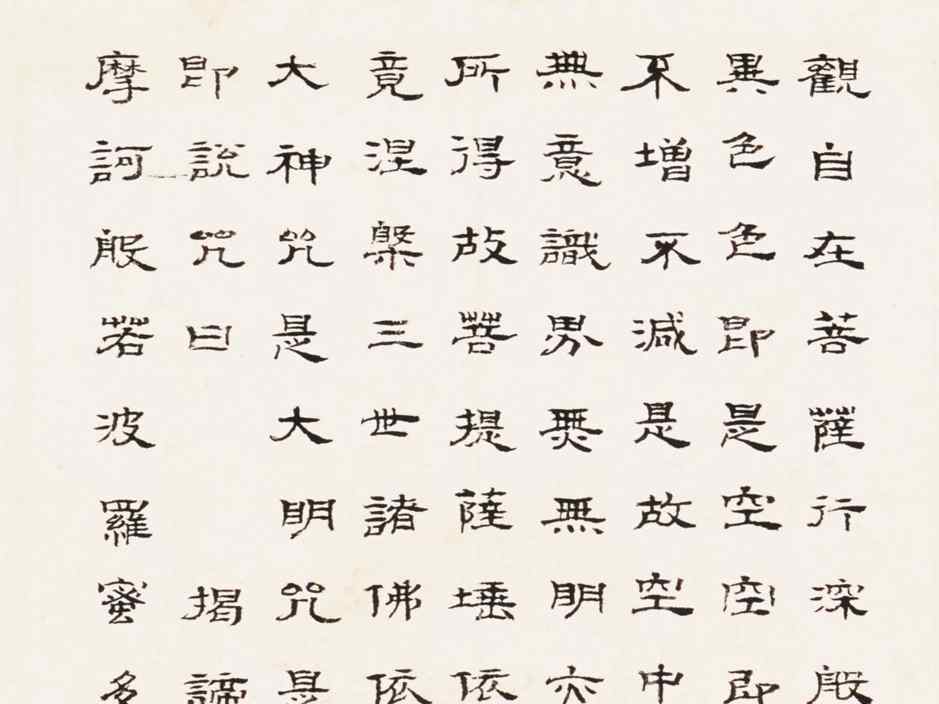 觀自在菩薩行深般
異色色即是空空即
不增不減是故空中
無意識界無無明亦
所得故菩提薩埵依
竟涅槃三世諸佛依
大神咒是大明咒是
即說咒曰 揭諦
摩訶般若波羅蜜多